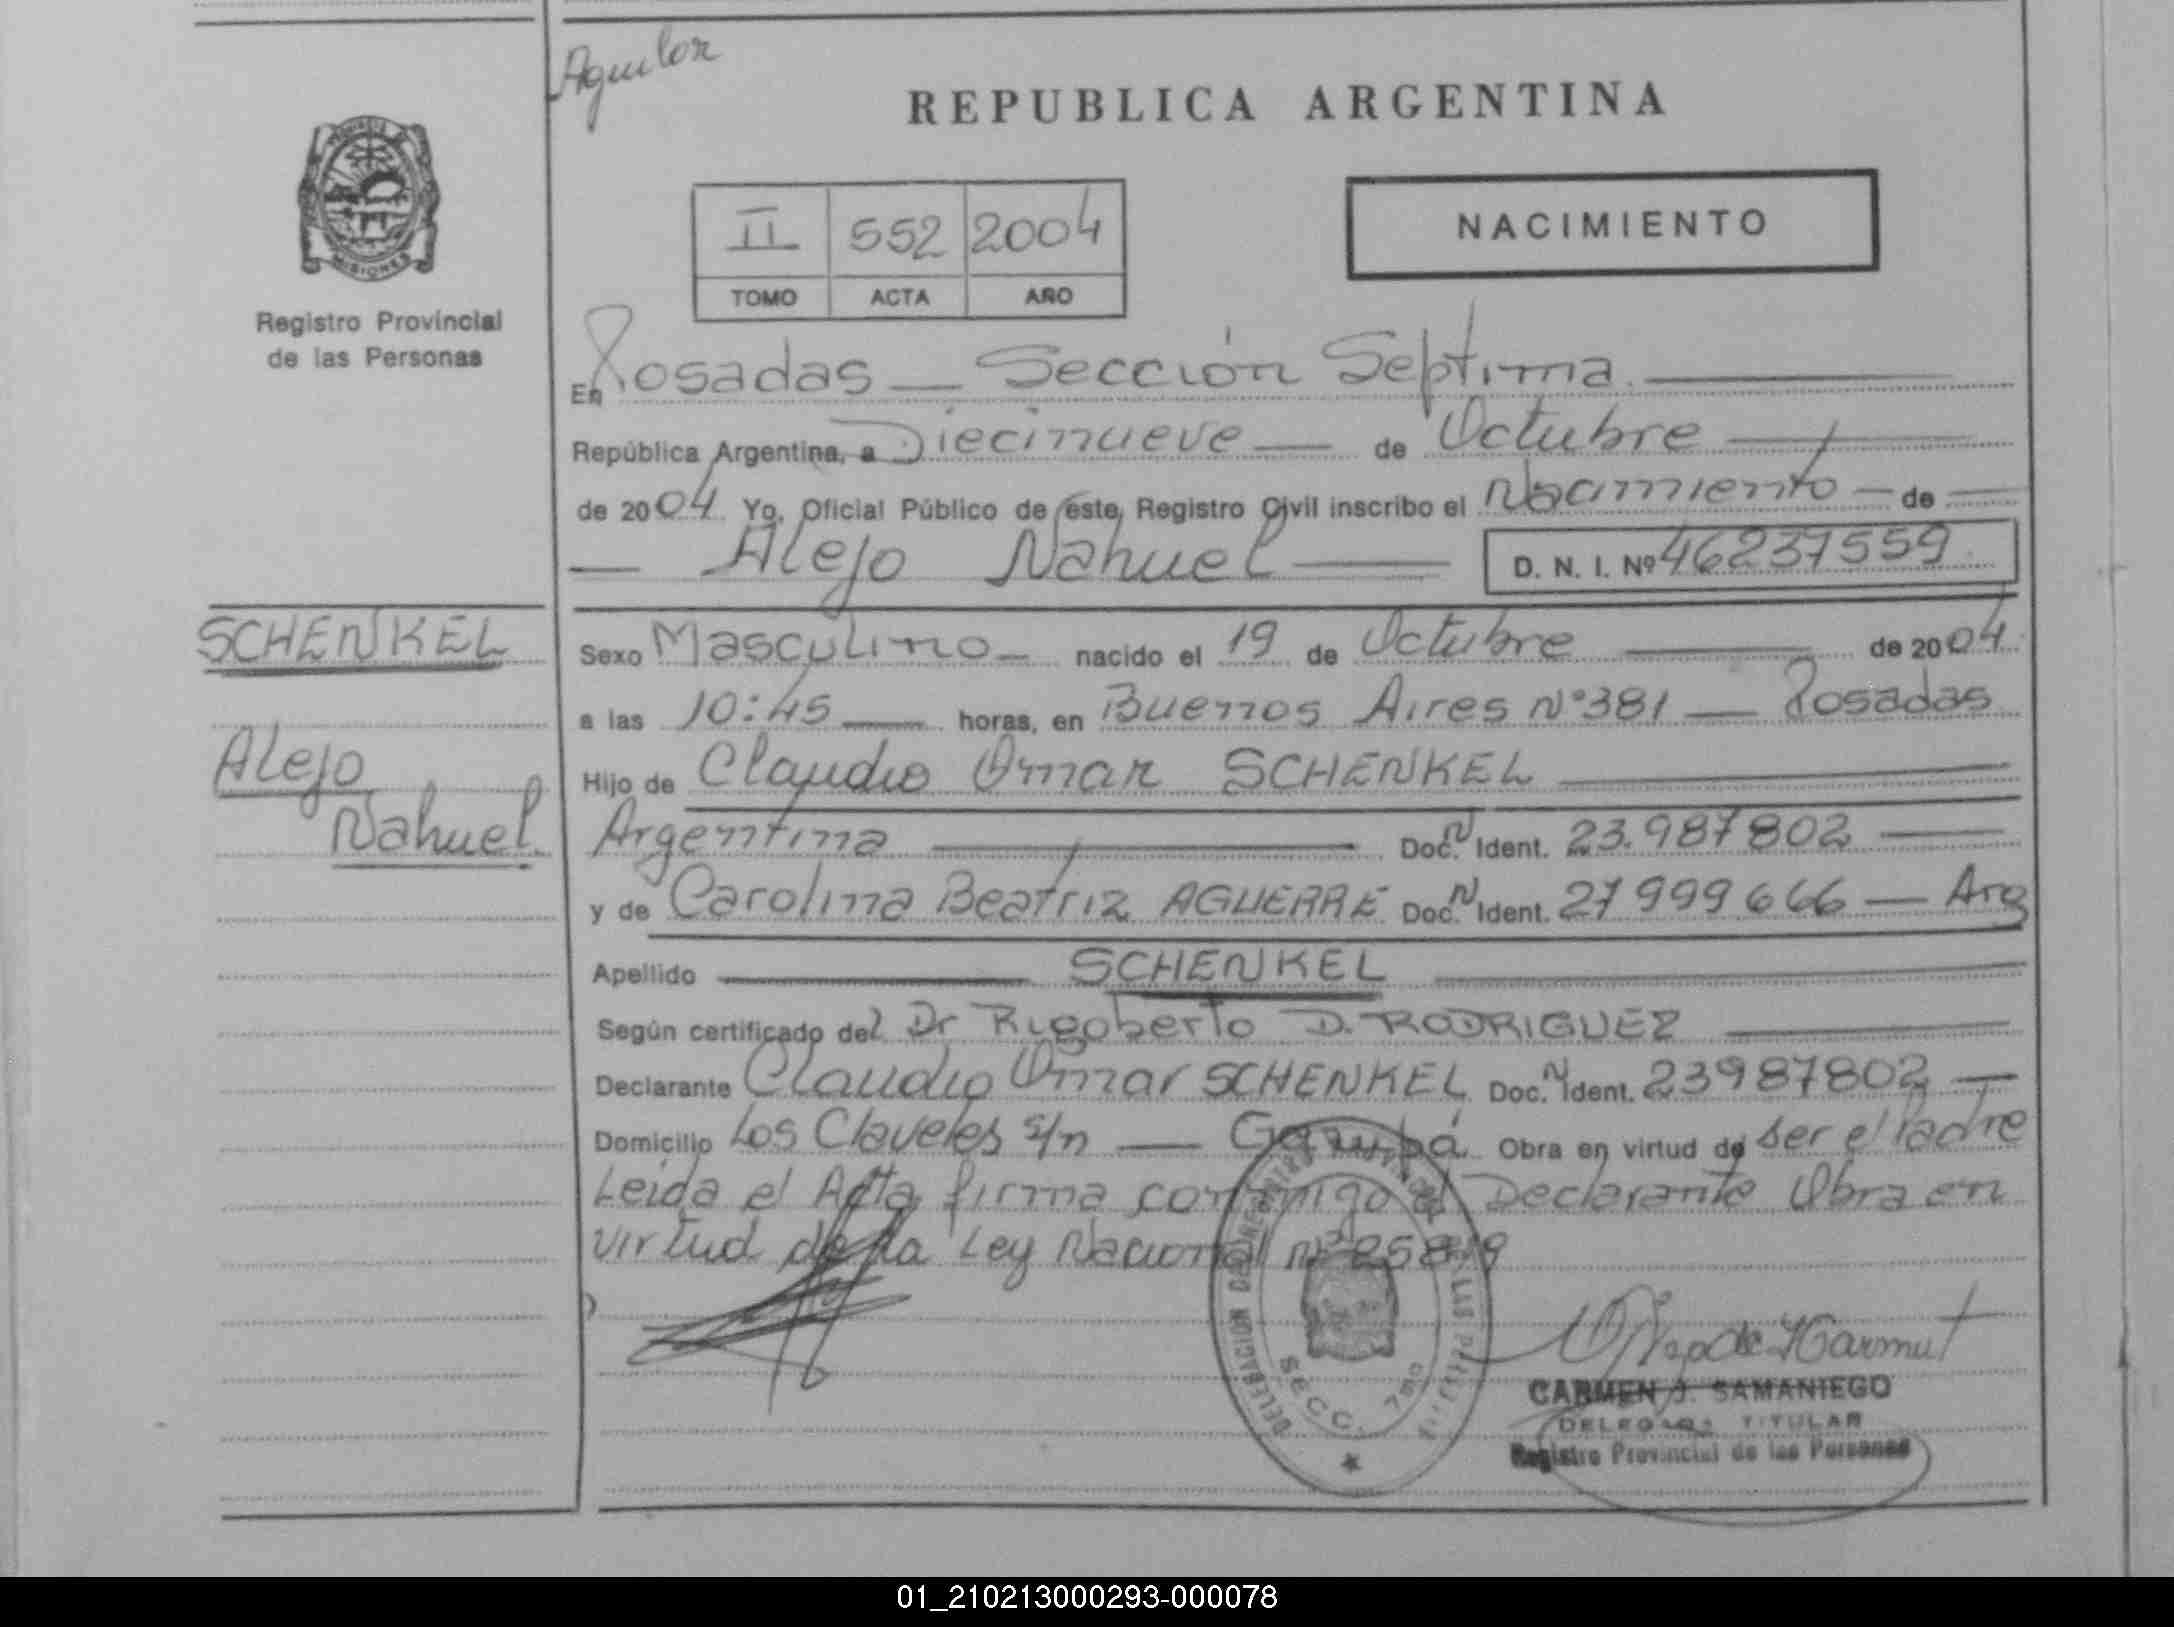 Aguilar
REPUBLICA ARGENTINA
MISIONES
Registro Provincial
de las Personas
II 552 2004
TOMO ACTA AÑO
NACIMIENTO
En Posadas — Sección Septima.
República Argentina, a Diecinueve — de Octubre
de 2004 Yo, Oficial Público de este Registro Civil inscribo el Nacimiento — de
— Alejo Nahuel — D. N. I. Nº 46237559
SCHENKEL
Alejo
Nahuel
Sexo Masculino — nacido el 19 de Octubre — de 2004
a las 10:45 — horas, en Buenos Aires Nº 381 — Posadas
Hijo de Claudio Omar SCHENKEL
Argentina — Doc. N Ident. 23.987802 —
y de Carolina Beatriz AGUERRE Doc. N Ident. 27999666 — Arg
Apellido — SCHENKEL
Según certificado del Dr Rigoberto D. RODRIGUEZ
Declarante Claudio Omar SCHENKEL Doc. N Ident. 23987802 —
Domicilio Los Claveles s/n — Garupá Obra en virtud de ser el Padre
Leida el Acta firma conmigo el Declarante Obra en
virtud de la Ley Nacional nº 25819
DELEGACION DEL REGISTRO PROVINCIAL DE LAS PERSONAS
SECC. 7ma
CARMEN J. SAMANIEGO
DELEGADA TITULAR
Registro Provincial de las Personas
01_210213000293-000078